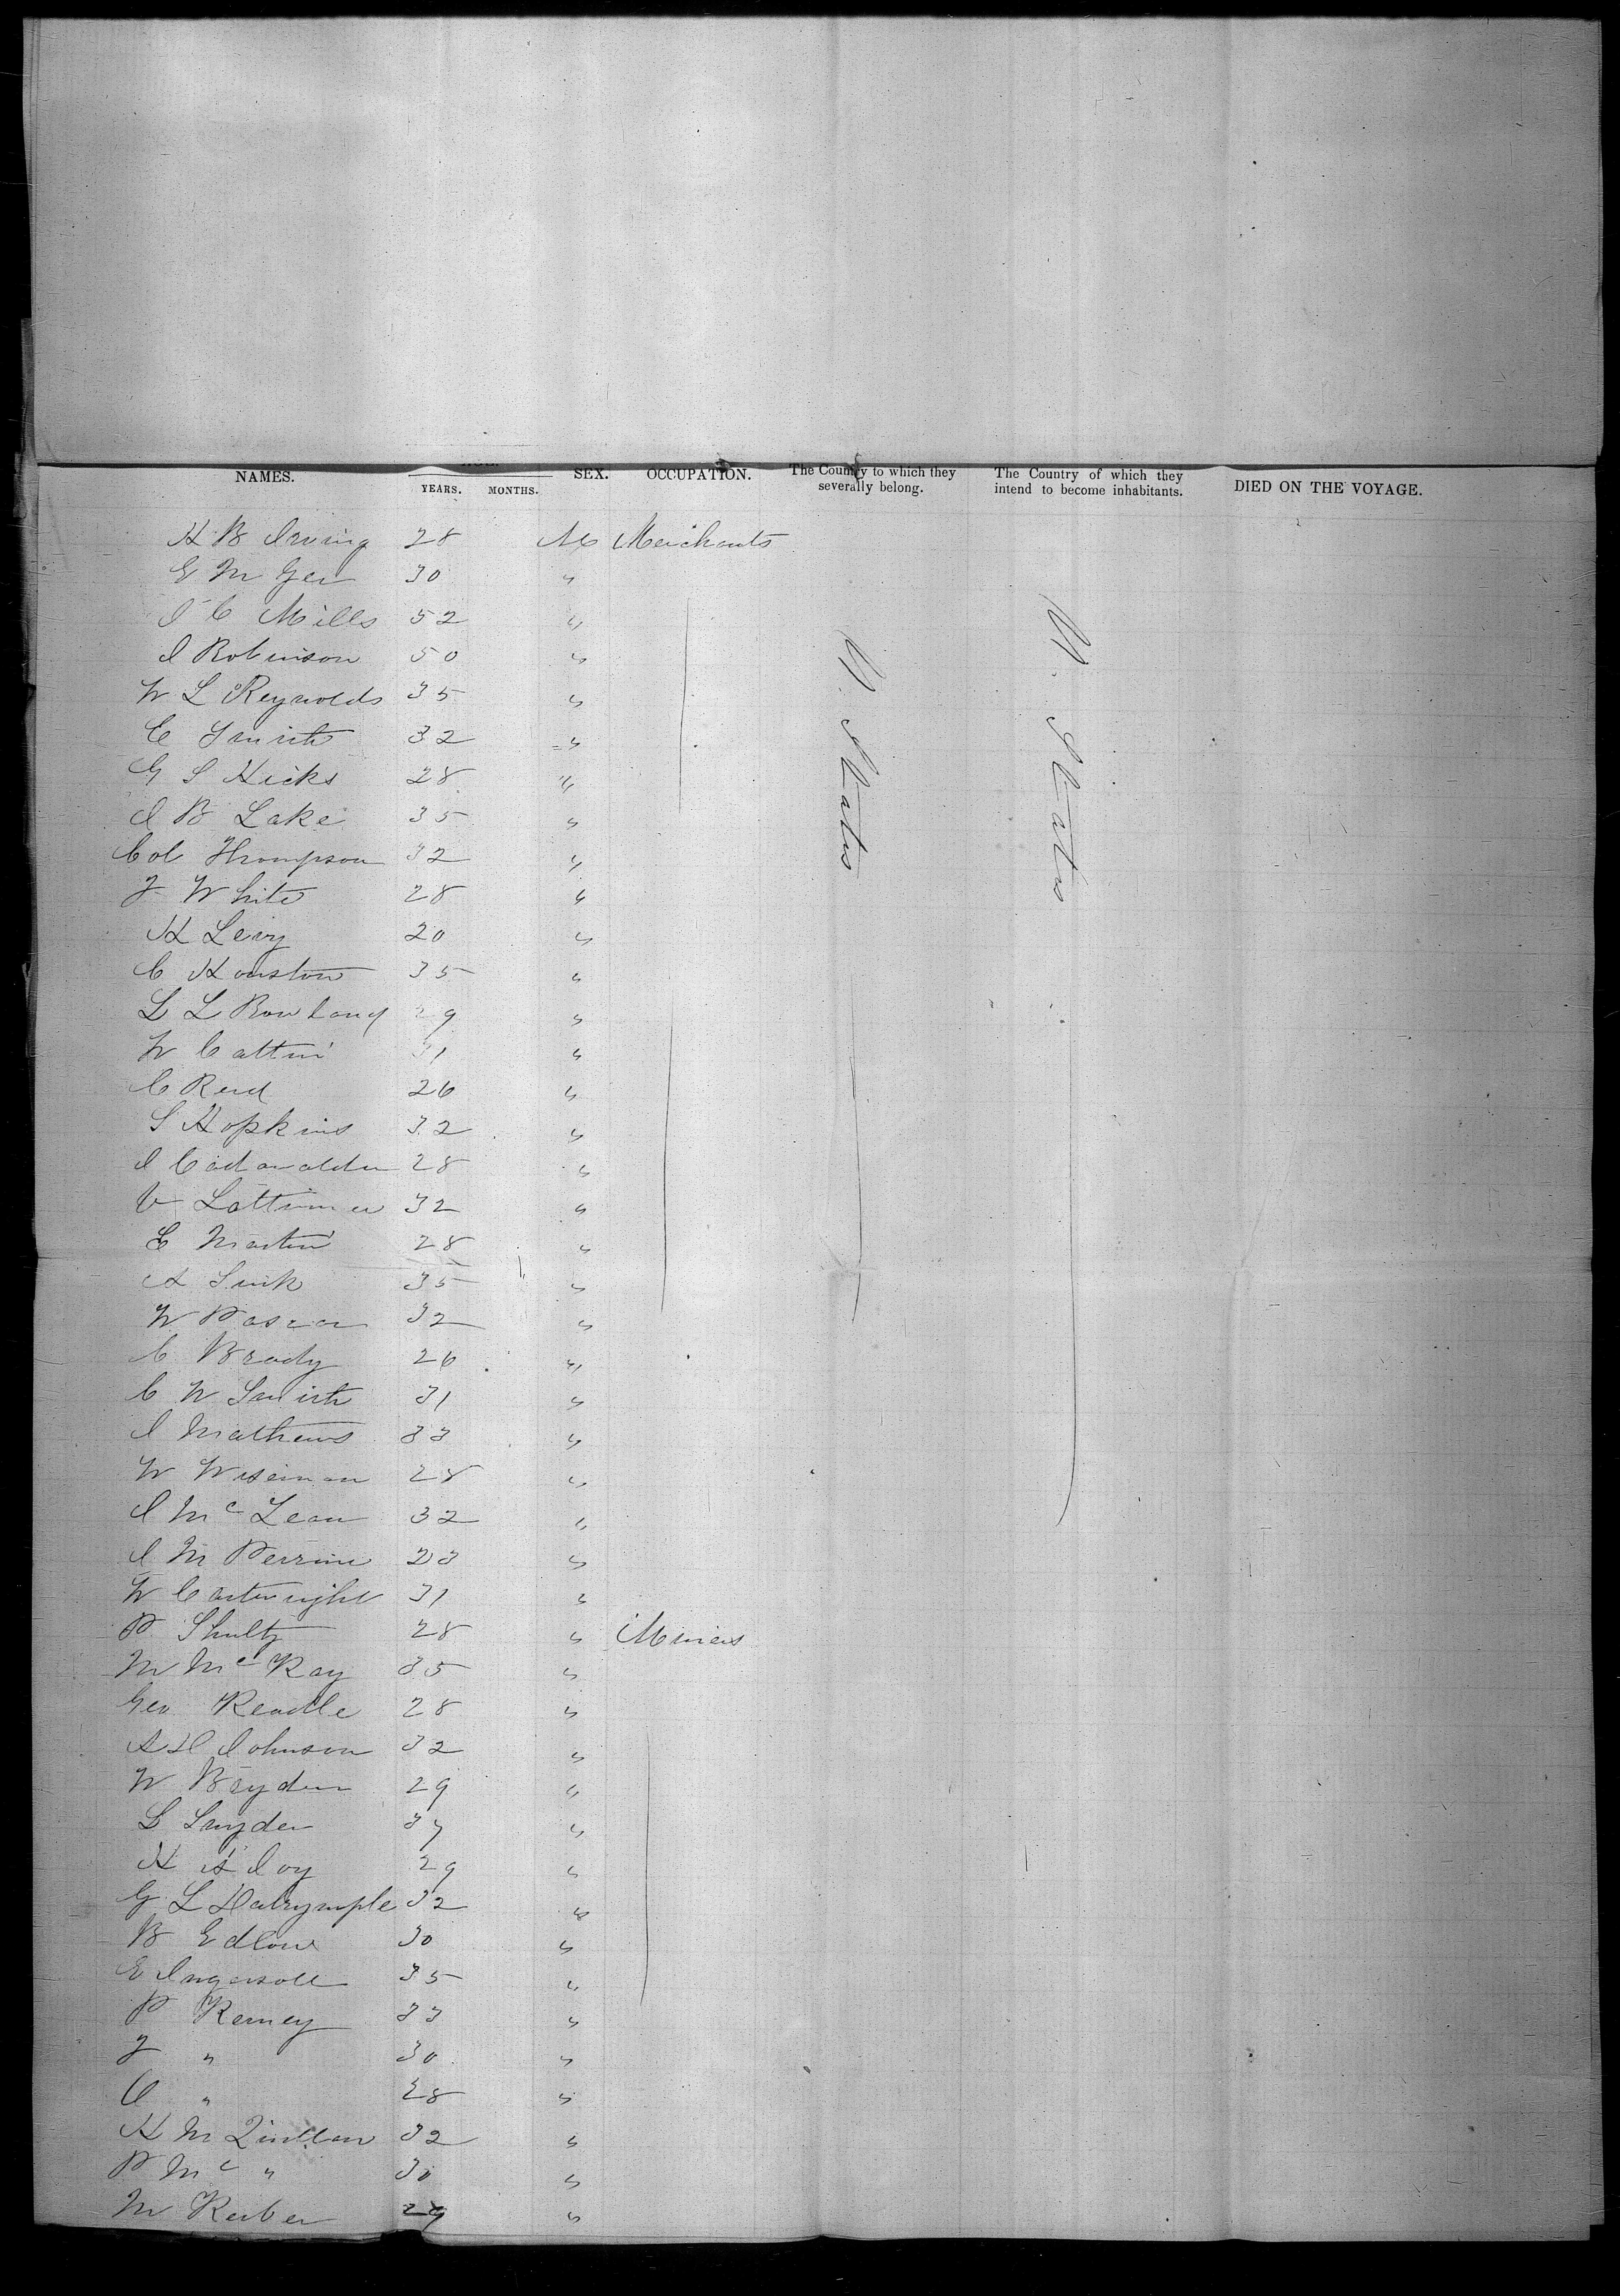 NAMES. YEARS. MONTHS. SEX. OCCUPATION. The Country to which they severally belong. The Country of which they intend to become inhabitants. DIED ON THE VOYAGE.
H B Irving 28 M Merchants
E M Ger 30 "
I C Mills 52 "
I Robinson 50 "
W L Reynolds 35 "
C Smith 32 "
G S Hicks 28 "
I B Lake 35 "
Col Thompson 32 "
J White 28 "
H Levy 20 "
C Houston 35 "
L L Rowland 29 "
W Cattin 31 "
C Reed 26 "
S Hopkins 32 "
I 28 "
V Lattimer 32 "
E Martin 28 "
A Sink 35 "
W 32 "
C Brady 26 "
C W Smith 31 "
I Mathews 33 "
W Wiseman 28 "
I Mc Lean 32 "
I M Perrine 23 "
W Cartwright 31 "
P Shultz 28 " Miners
M Mc Kay 35 "
Geo Readle 28 "
A H Johnson 32 "
W Boyden 29 "
L Snyder 37 "
H A Joy 29 "
G L Dalrymple 32 "
B Edlow 30 "
E Ingersoll 35 "
P Kerney 33 "
J " 30 "
O " 28 "
H M Quillan 32 "
P Mc " 30 "
M Kerber 29 "
U. States
U. States